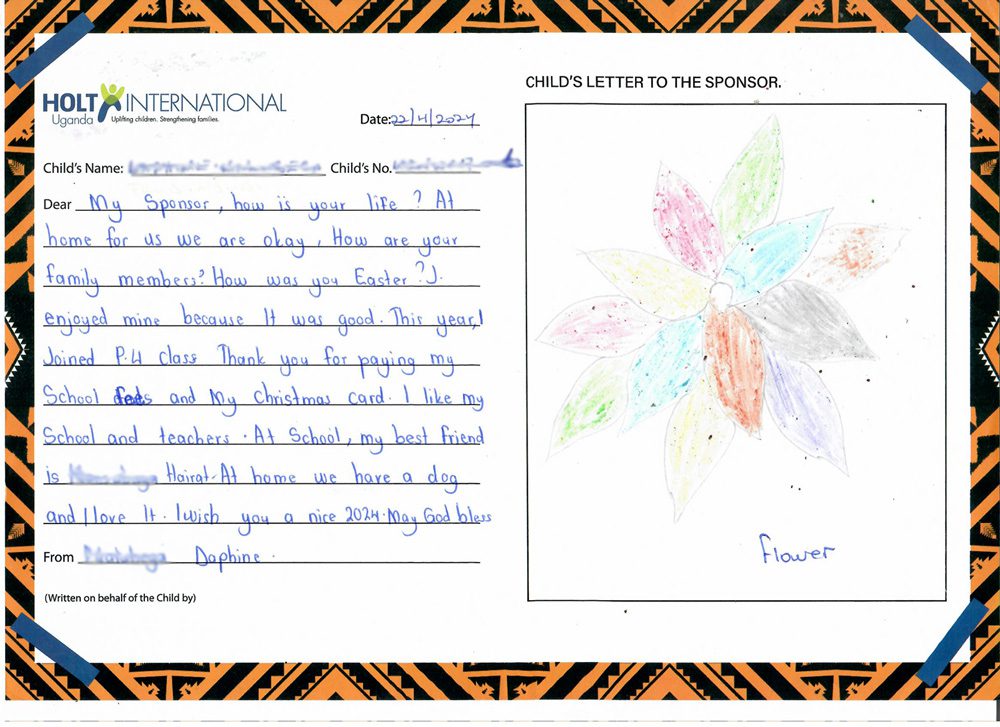 HOLT INTERNATIONAL
Uganda Uplifting children. Strengthening families.
Date: 22/4/2024
Child's Name: Child's No.
Dear My Sponsor, how is your life? At
home for us we are okay, How are your
family members? How was you Easter? I.
enjoyed mine because It was good. This year, I
Joined P.4 class Thank you for paying my
School fees and My Christmas card. I like my
School and teachers. At School, my best friend
is Hairat. At home we have a dog
and I love It. I wish you a nice 2024. May God bless
From Daphine.
(Written on behalf of the Child by)
CHILD'S LETTER TO THE SPONSOR.
flower